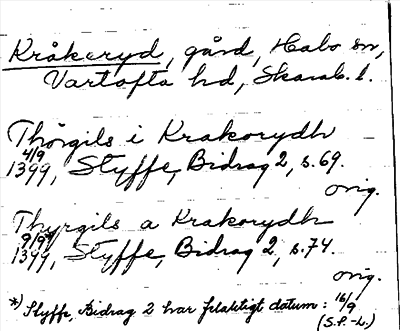 Kråkeryd, gård, Habo sn,
Vartofta hd, Skarab. l.
Thørgils i Krakorydh
4/9
1399, Styffe, Bidrag 2, s. 69.
orig.
Thyrgils a Krakorydh
9/9*)
1399, Styffe, Bidrag 2, s. 74.
orig.
*) Styffe, Bidrag 2 har felaktigt datum: 16/9
(S.P.-L.)